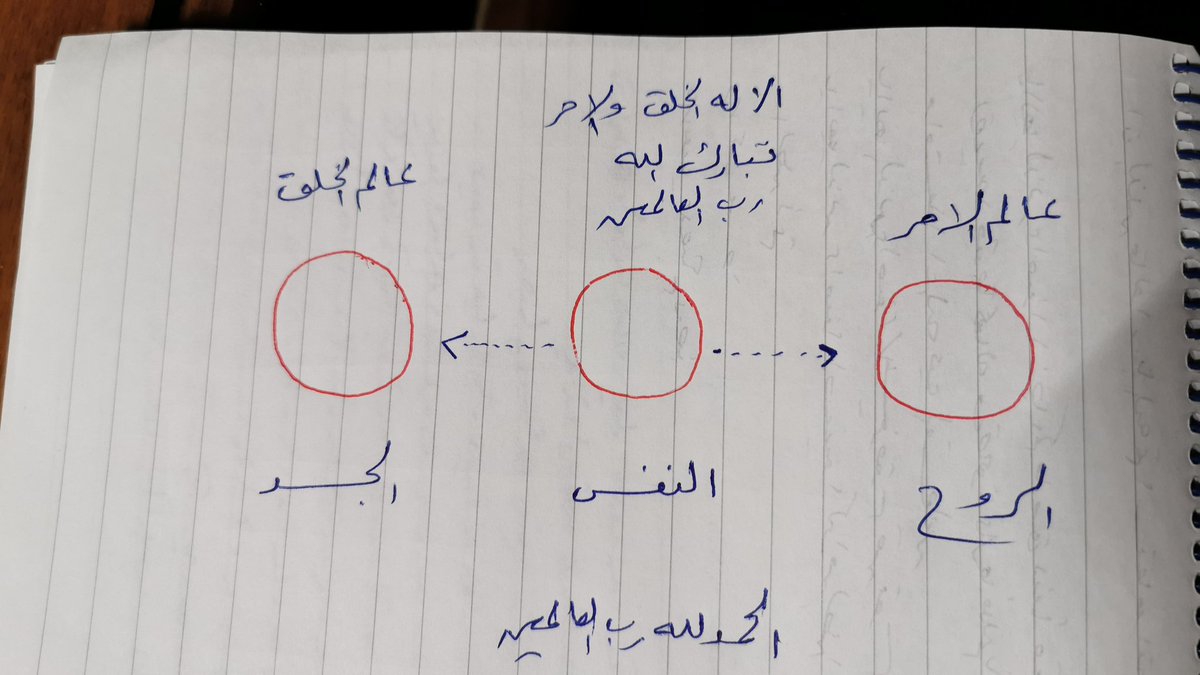 الا له الخلق والامر
تبارك الله
رب العالمين
عالم الامر
عالم الخلق
الروح
النفس
الجسد
الحمد لله رب العالمين